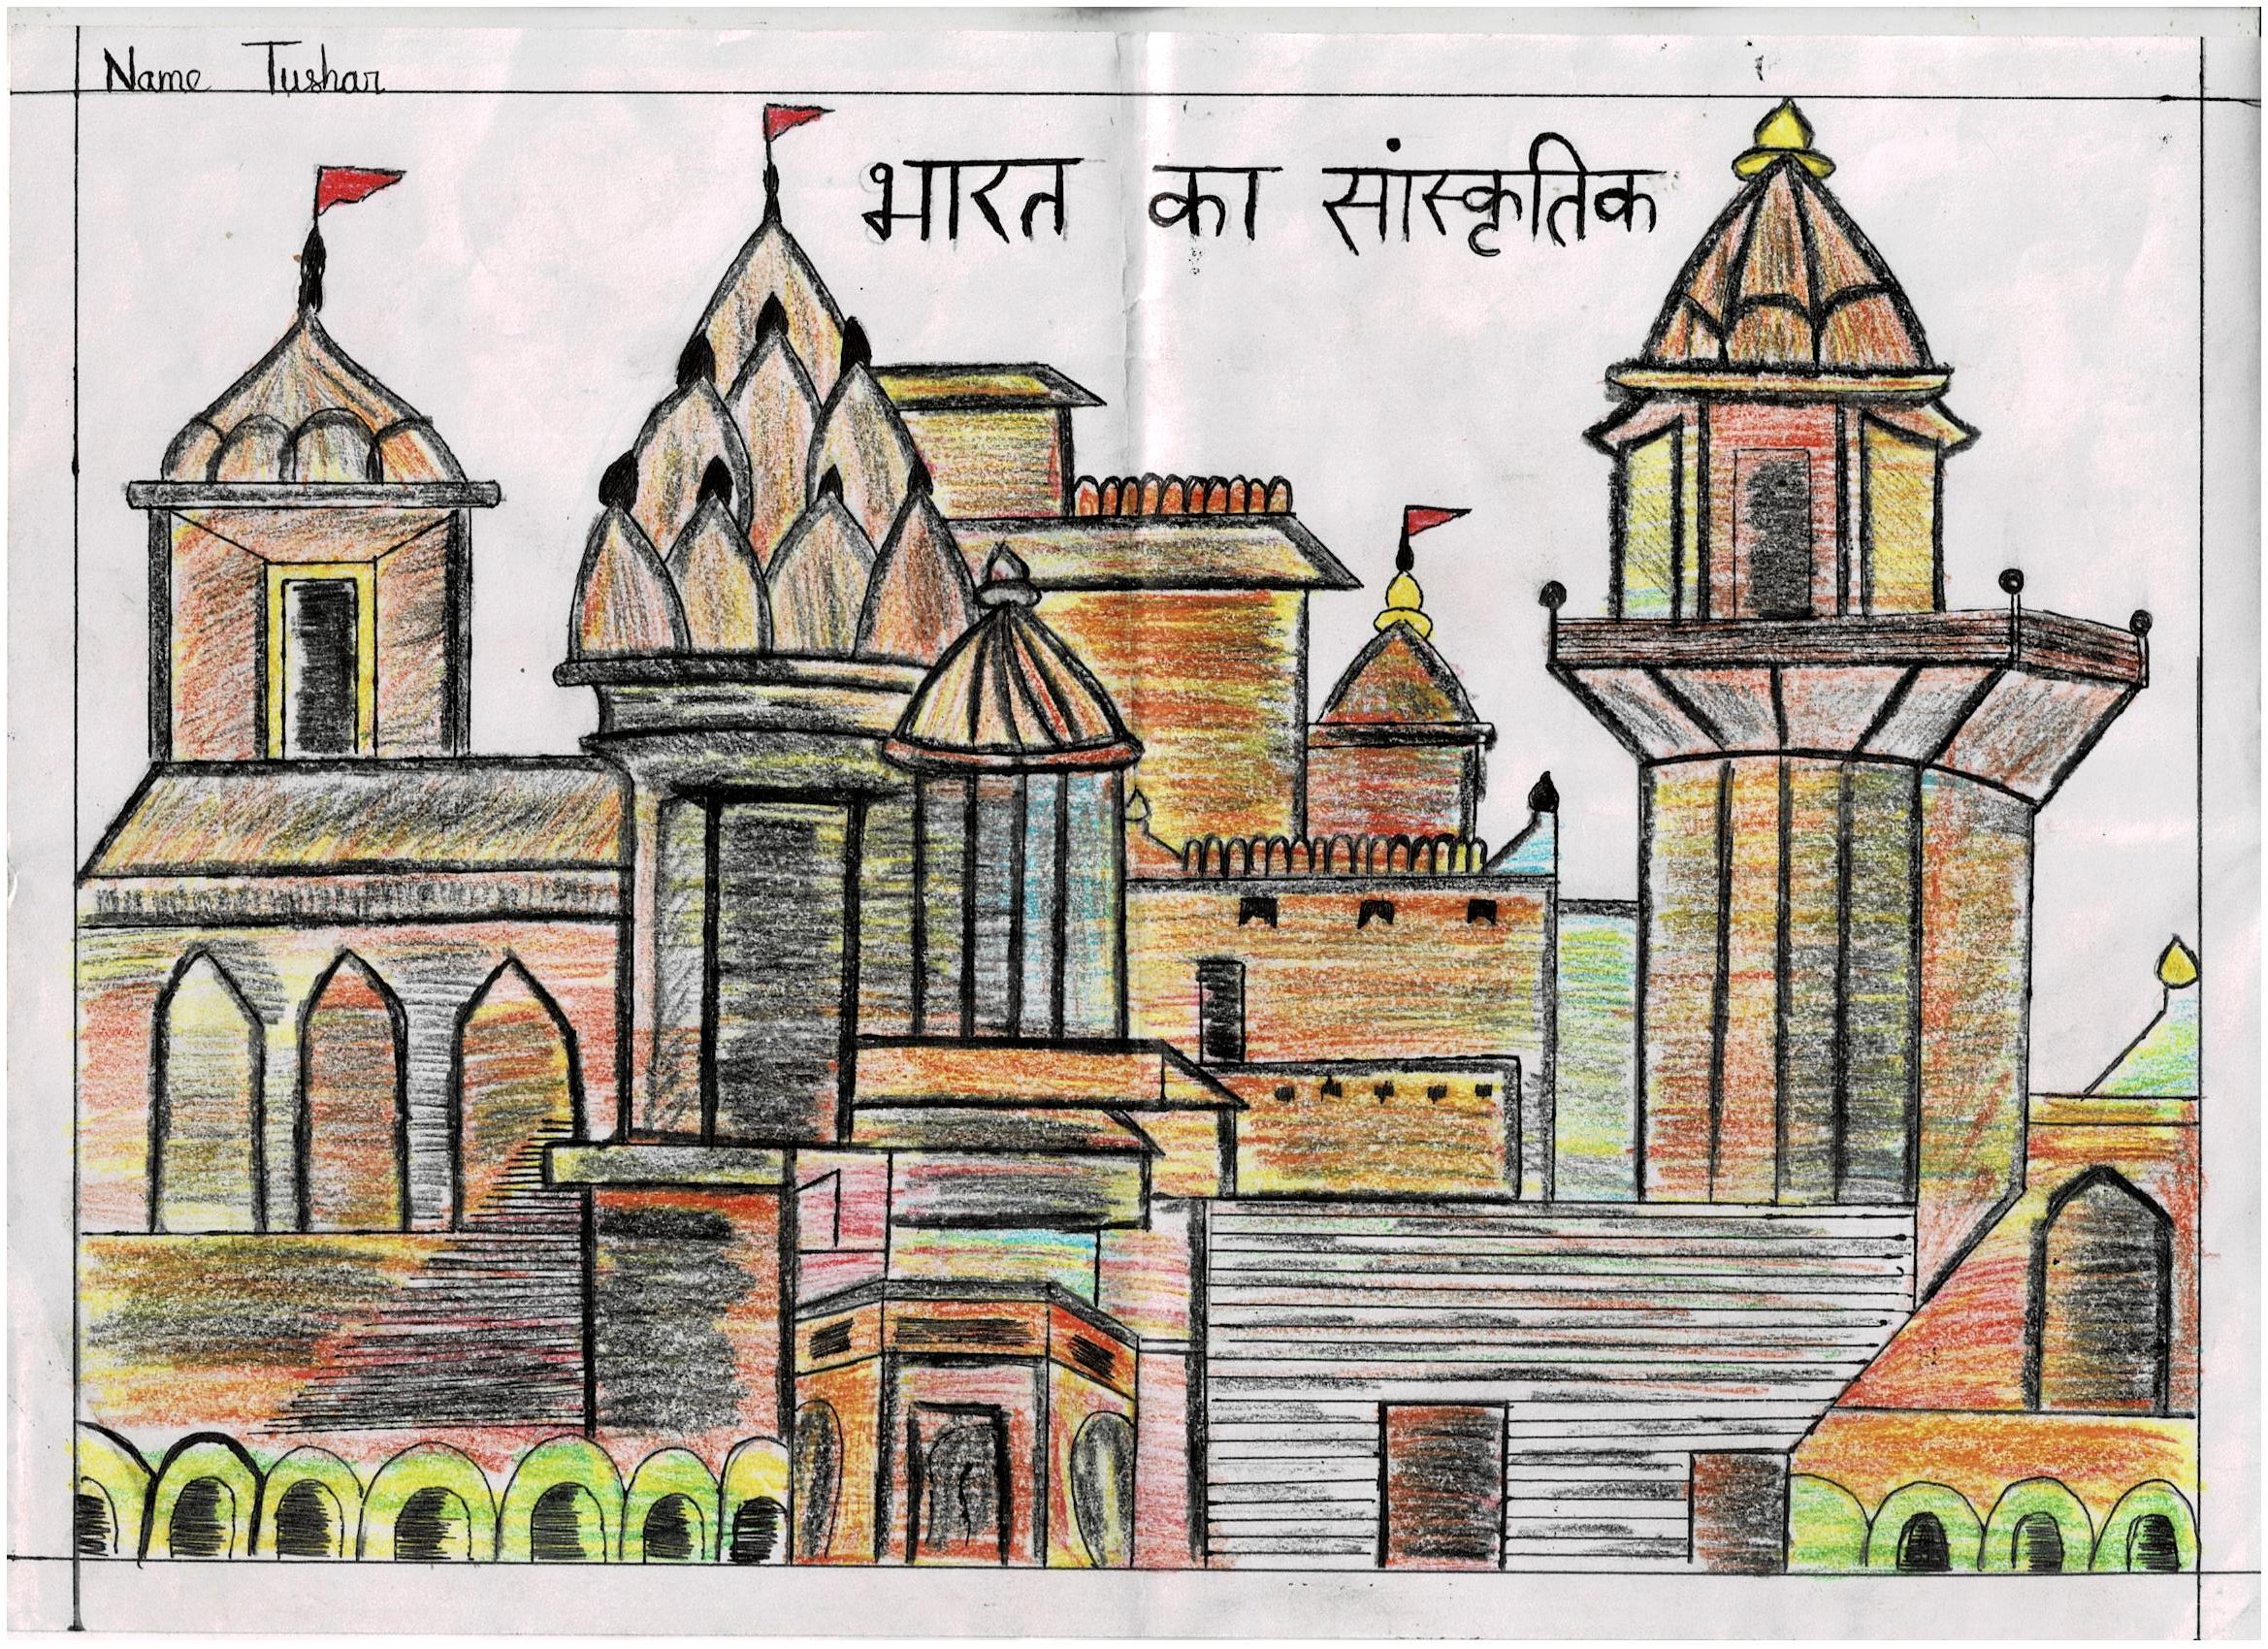 Name Tushar
भारत का सांस्कृतिक